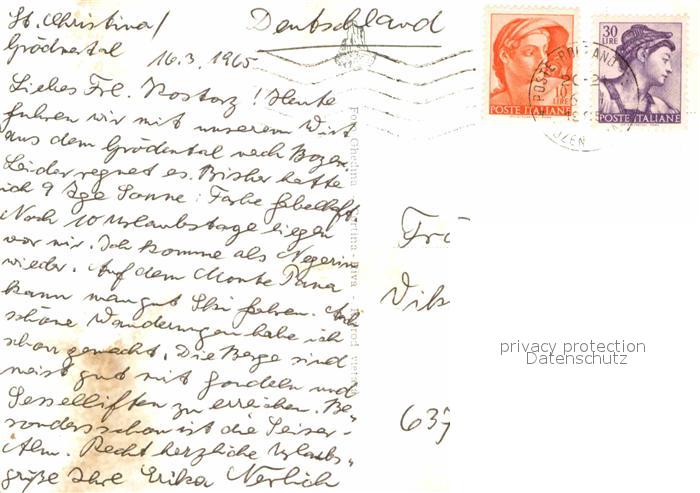 St. Christina/
Grödnertal
Deutschland
16.3.1965
Liebes Frl. Nostorz! Heute
fuhren wir mit unserem Wirt
aus dem Grödental nach Bozen.
Leider regnet es. Bisher hatte
ich 9 Tge Sonne: Farbe fabelhaft.
Noch 10 Urlaubstage liegen
vor mir. Ich komme als Negerin
wieder. Auf dem Monte Pana
kann man gut Ski fahren. Auch
schöne Wanderungen habe ich
schon gemacht. Die Berge sind
meist gut mit Gondeln und
Sesselliften zu erreichen. Be-
sonders schön ist die Seiser-
Alm. Recht herzliche Urlaubs-
grüße Ihre Erika Nerlich
Foto Ghedina
10
LIRE
POSTE ITALIANE
30
LIRE
POSTE ITALIANE
Vik
637
privacy protection
Datenschutz